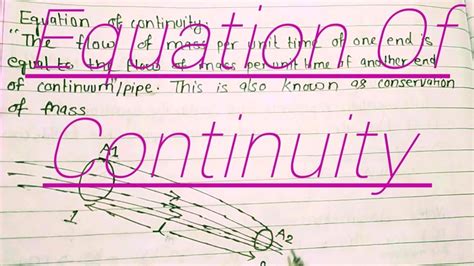 Equation of continuity.
"The flow of mass per unit time of one end is
equal to the flow of mass per unit time of another end
of continuum"/pipe. This is also known as conservation
of mass
Equation Of
Continuity
A1
A2
1
L